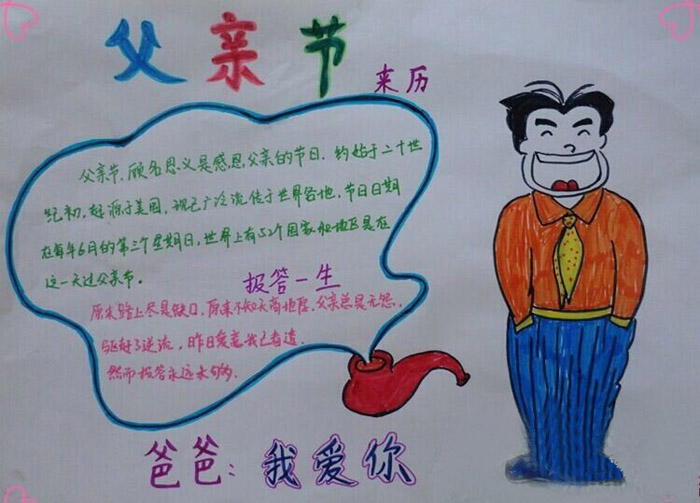 父亲节
来历
父亲节,顾名思义是感恩父亲的节日.约始于二十世
纪初,起源于美国,现已广泛流传于世界各地,节日日期
在每年6月的第三个星期日,世界上有52个国家和地区是在
这一天过父亲节。
报答一生
原来路上尽是缺口,原来不知天高地厚,父亲总是无怨,
驱赶了逆流,昨日爱意我已看透.
然而报答永远未句够.
爸爸:我爱你